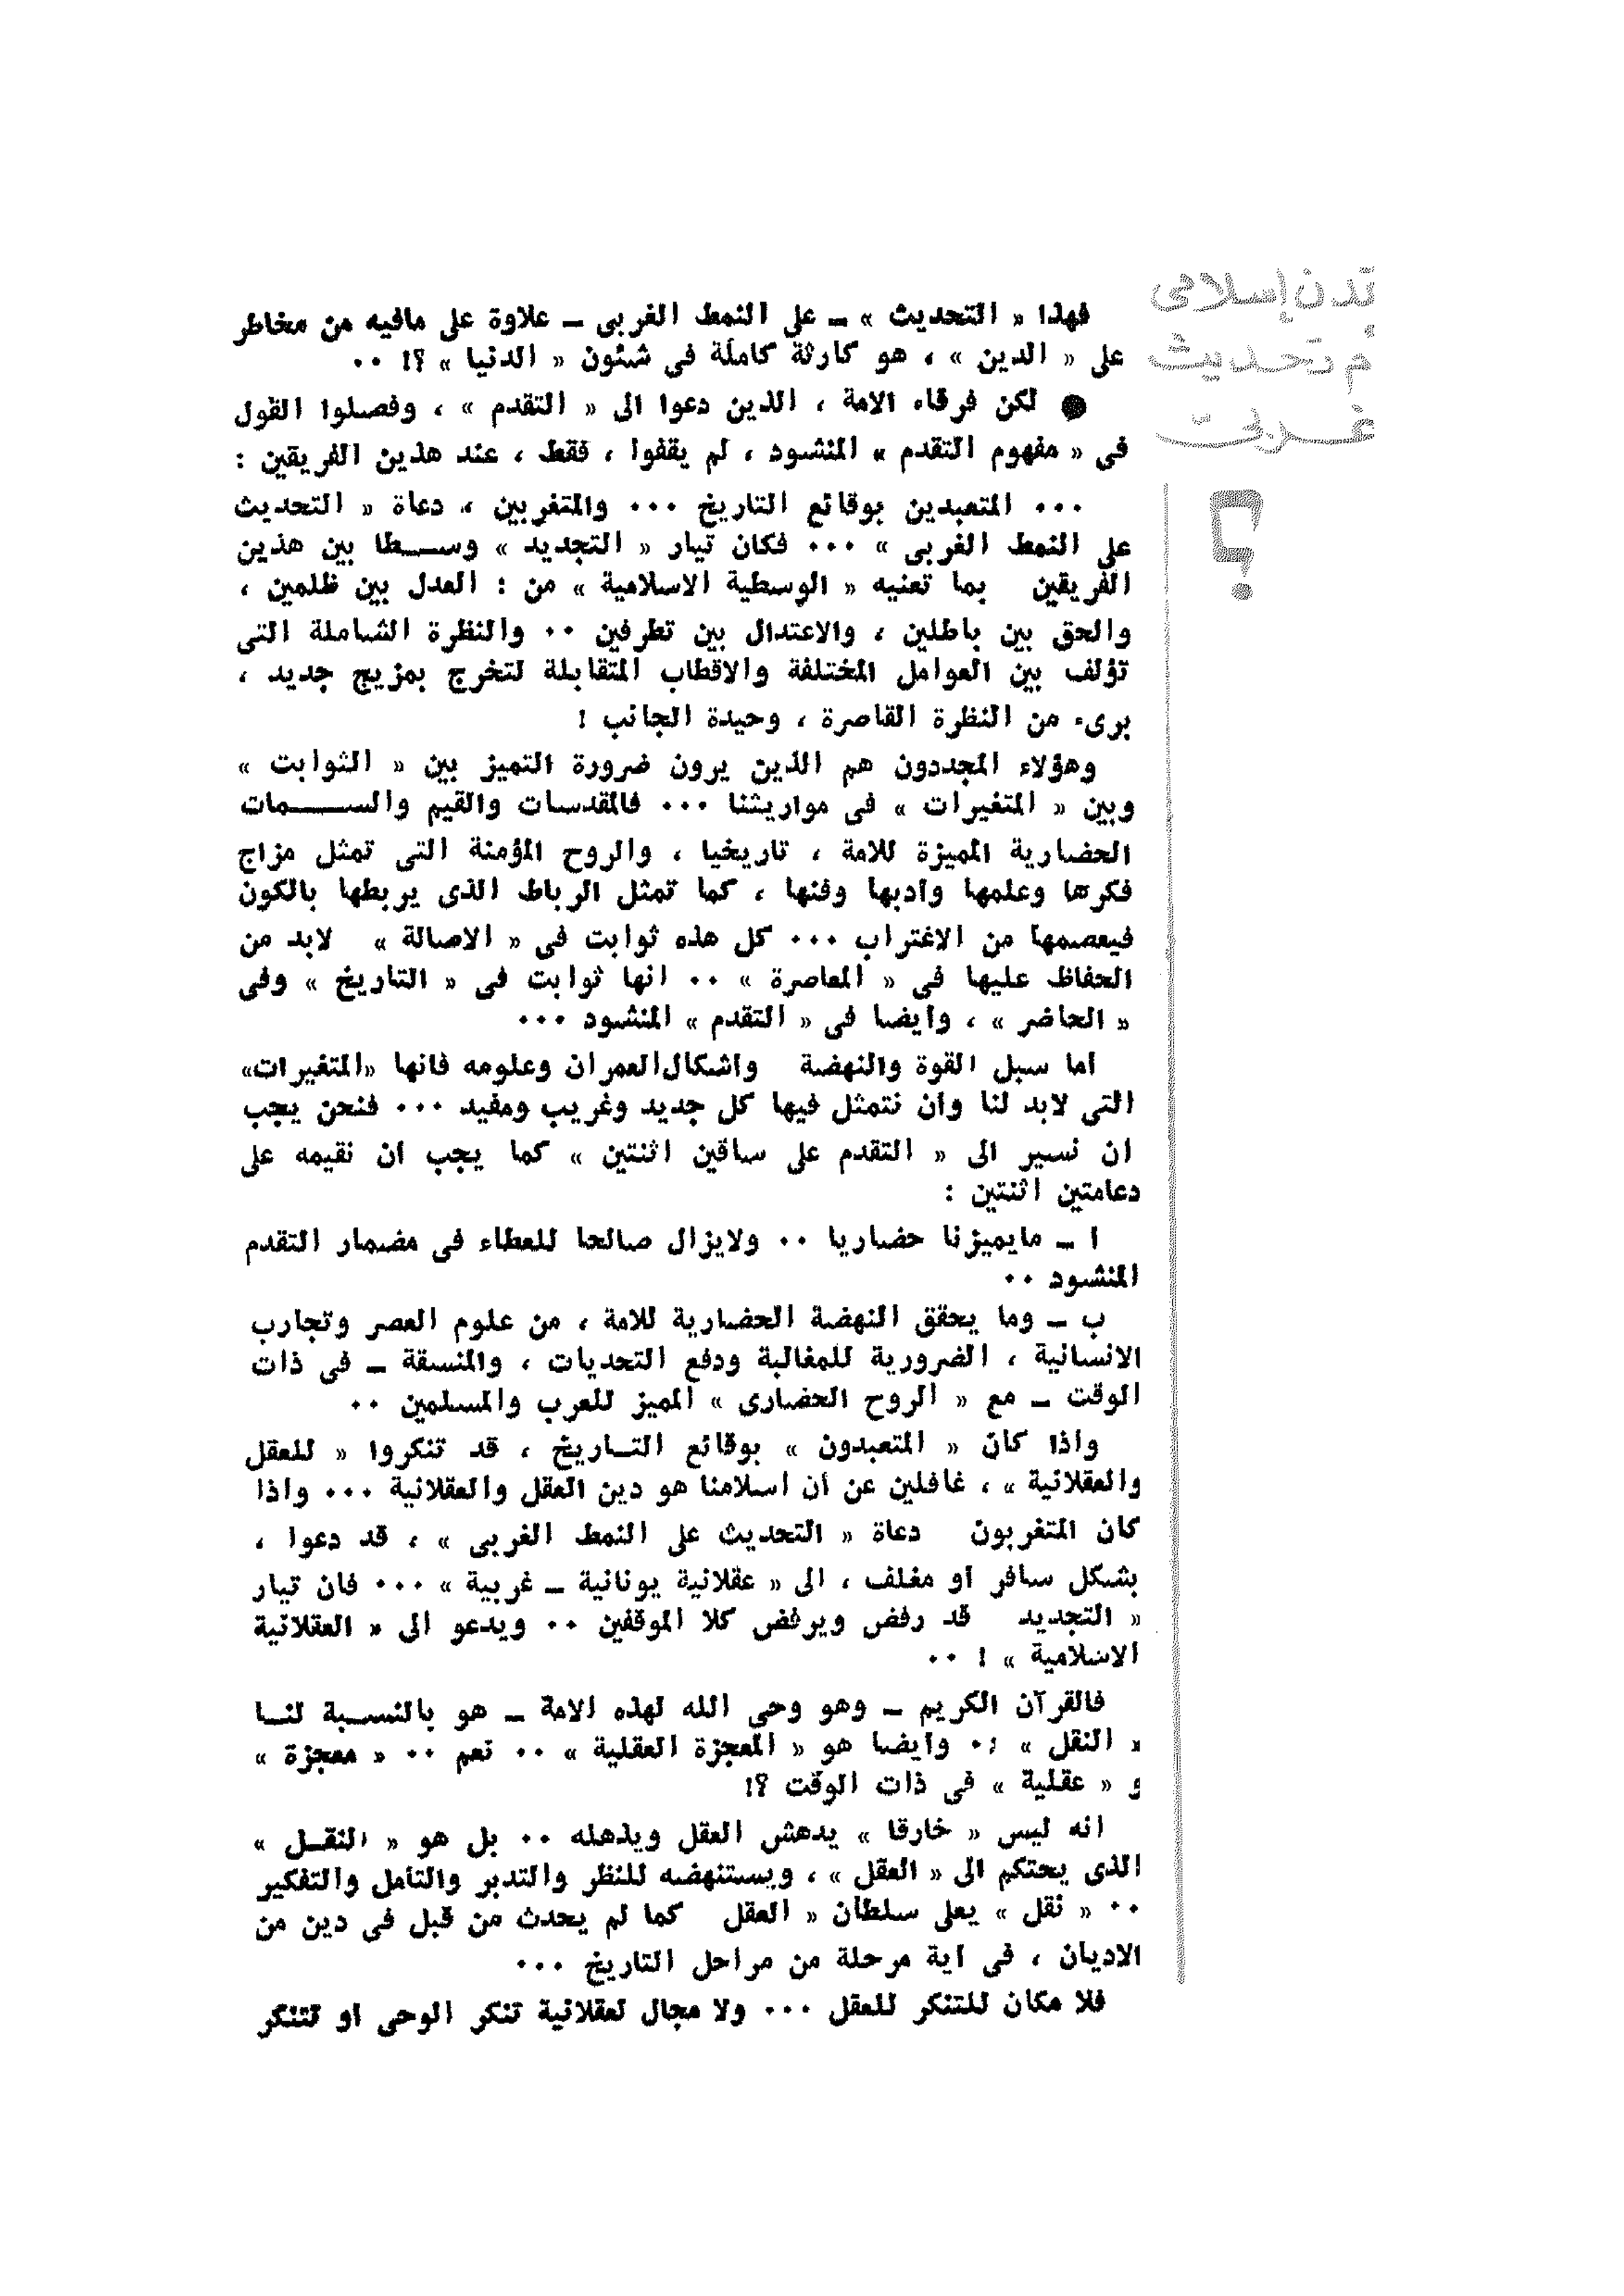 تمدن إسلامى
أم تحديث
غربى
؟
فهذا « التحديث » ـ على النمط الغربى ـ علاوة على مافيه من مخاطر
على « الدين » ، هو كارثة كاملة فى شئون « الدنيا » ؟! ٠٠
● لكن فرقاء الامة ، الذين دعوا الى « التقدم » ، وفصلوا القول
فى « مفهوم التقدم » المنشود ، لم يقفوا ، فقط ، عند هذين الفريقين :
٠٠٠ المتعبدين بوقائع التاريخ ٠٠٠ والمتغربين ، دعاة « التحديث
على النمط الغربى » ٠٠٠ فكان تيار « التجديد » وسـطا بين هذين
الفريقين بما تعنيه « الوسطية الاسلامية » من : العدل بين ظلمين ،
والحق بين باطلين ، والاعتدال بين تطرفين ٠٠ والنظرة الشاملة التى
تؤلف بين العوامل المختلفة والاقطاب المتقابلة لتخرج بمزيج جديد ،
برىء من النظرة القاصرة ، وحيدة الجانب !
وهؤلاء المجددون هم الذين يرون ضرورة التميز بين « الثوابت »
وبين « المتغيرات » فى مواريثنا ٠٠٠ فالمقدسات والقيم والسـمات
الحضارية المميزة للامة ، تاريخيا ، والروح المؤمنة التى تمثل مزاج
فكرها وعلمها وأدبها وفنها ، كما تمثل الرباط الذى يربطها بالكون
فيعصمها من الاغتراب ٠٠٠ كل هذه ثوابت فى « الاصالة » لابد من
الحفاظ عليها فى « المعاصرة » ٠٠ انها ثوابت فى « التاريخ » وفى
« الحاضر » ، وأيضا فى « التقدم » المنشود ٠٠٠
أما سبل القوة والنهضة وأشكال العمران وعلومه فانها «المتغيرات»
التى لابد لنا وأن نتمثل فيها كل جديد وغريب ومفيد ٠٠٠ فنحن يجب
أن نسير الى « التقدم على ساقين اثنتين » كما يجب أن نقيمه على
دعامتين اثنتين :
ا ـ مايميزنا حضاريا ٠٠ ولايزال صالحا للعطاء فى مضمار التقدم
المنشود ٠٠
ب ـ وما يحقق النهضة الحضارية للامة ، من علوم العصر وتجارب
الانسانية ، الضرورية للمغالبة ودفع التحديات ، والمنسقة ـ فى ذات
الوقت ـ مع « الروح الحضارى » المميز للعرب والمسلمين ٠٠
واذا كان « المتعبدون » بوقائع التـاريخ ، قد تنكروا « للعقل
والعقلانية » ، غافلين عن أن اسلامنا هو دين العقل والعقلانية ٠٠٠ واذا
كان المتغربون دعاة « التحديث على النمط الغربى » ، قد دعوا ،
بشكل سافر أو مغلف ، الى « عقلانية يونانية ـ غربية » ٠٠٠ فان تيار
« التجديد قد رفض ويرفض كلا الموقفين ٠٠ ويدعو الى « العقلانية
الاسلامية » ! ٠٠
فالقرآن الكريم ـ وهو وحى الله لهذه الامة ـ هو بالنسـبة لنـا
« النقل » ٠٠ وأيضا هو « المعجزة العقلية » ٠٠ نعم ٠٠ « معجزة »
و « عقلية » فى ذات الوقت ؟!
انه ليس « خارقا » يدهش العقل ويذهله ٠٠ بل هو « النقـل »
الذى يحتكم الى « العقل » ، ويستنهضه للنظر والتدبر والتأمل والتفكير
٠٠ « نقل » يعلى سلطان « العقل كما لم يحدث من قبل فى دين من
الاديان ، فى أية مرحلة من مراحل التاريخ ٠٠٠
فلا مكان للتنكر للعقل ٠٠٠ ولا مجال لعقلانية تنكر الوحى أو تتنكر